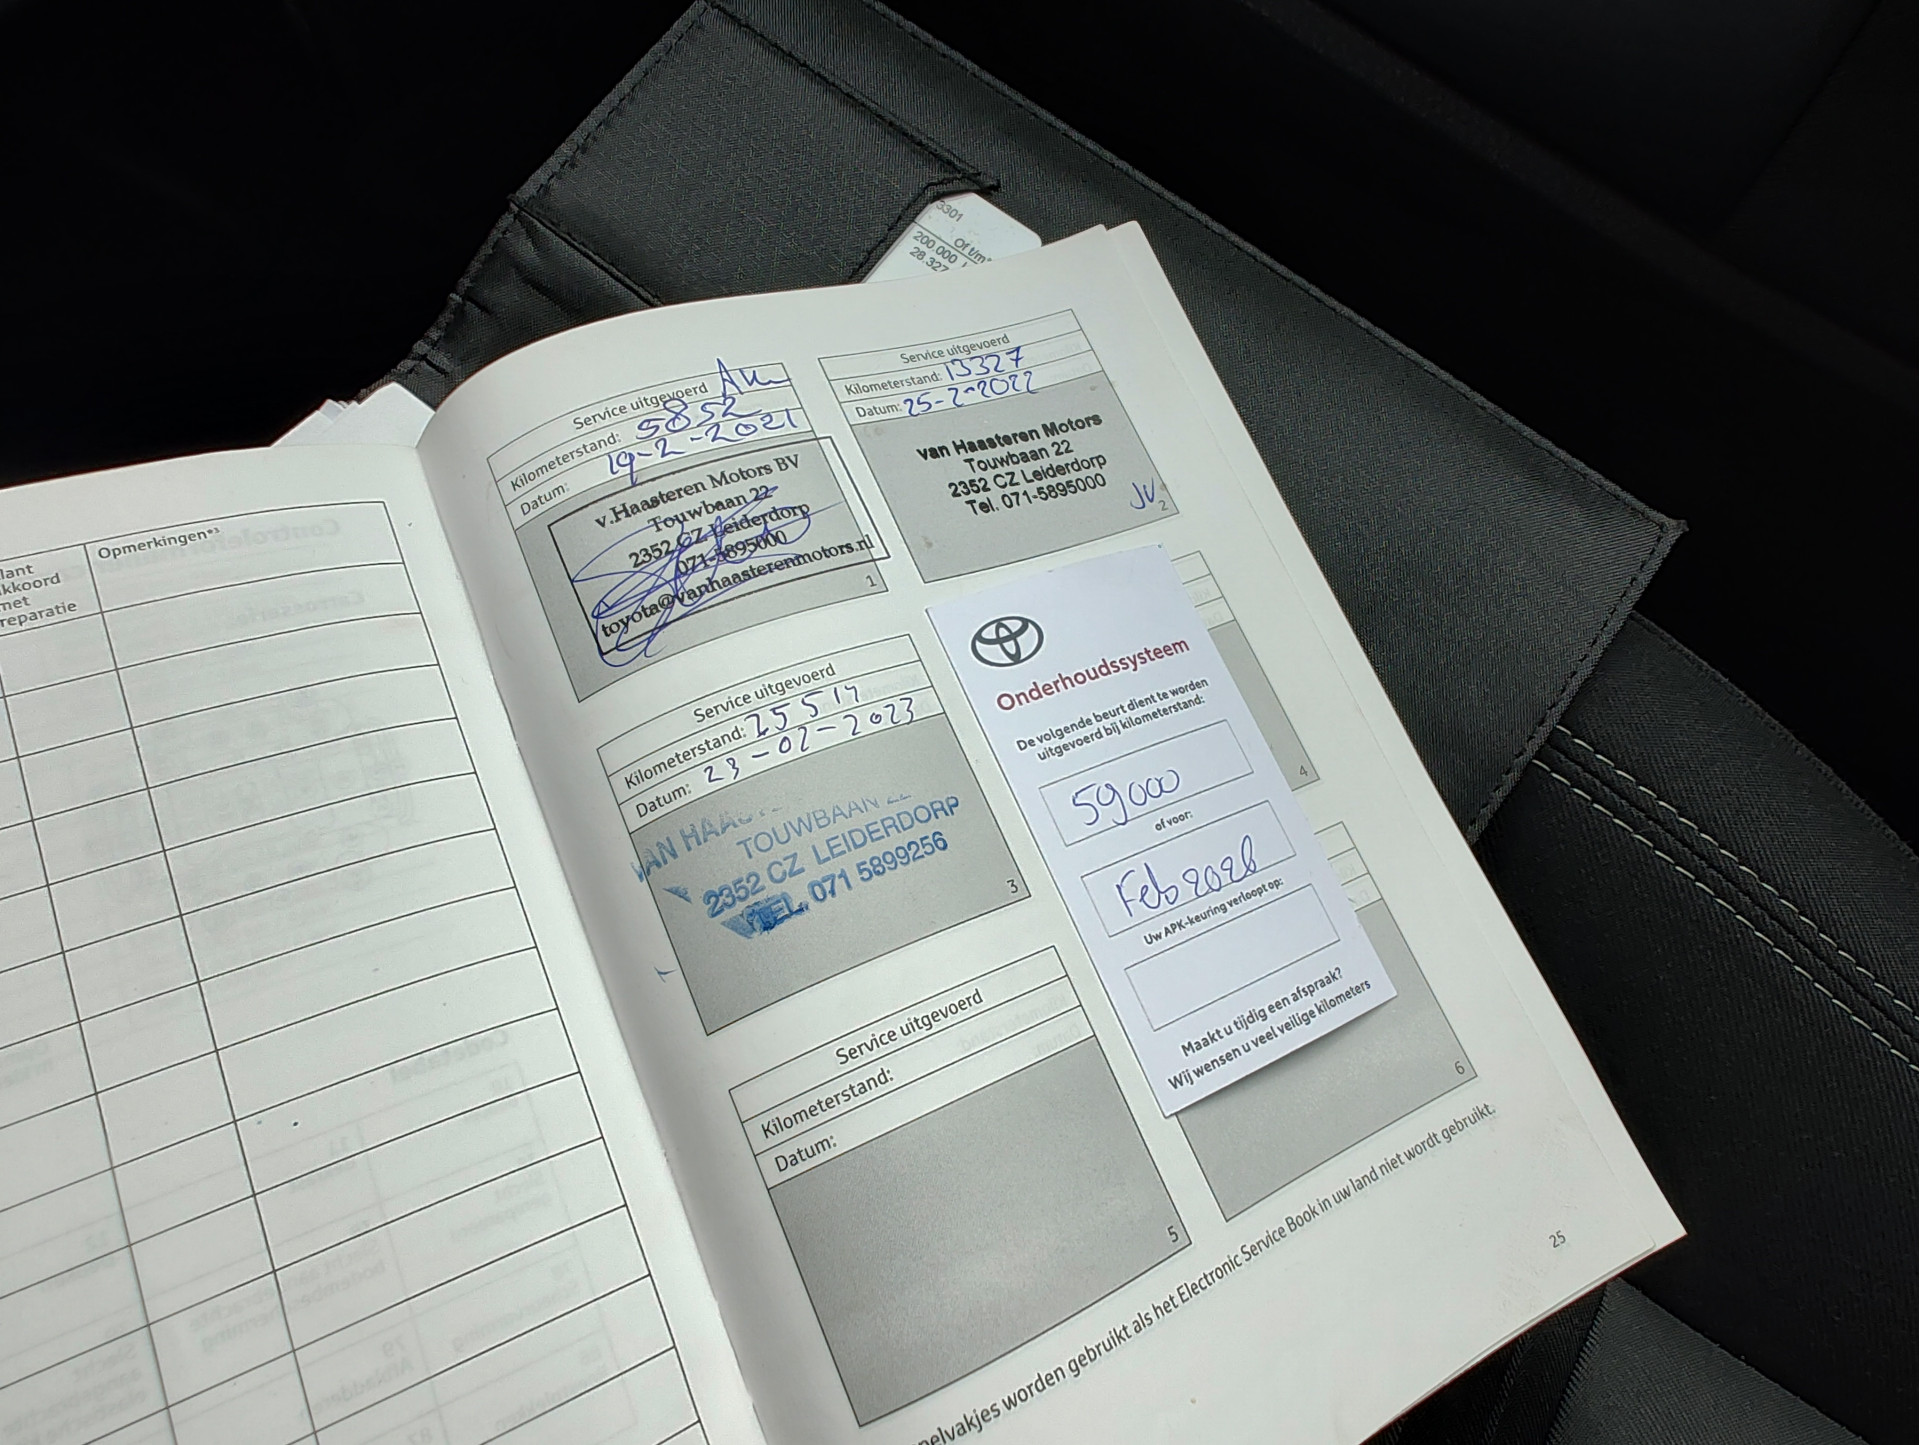 3301
Of t/m
200.000
28.327
lant
kkoord
met
reparatie
Opmerkingen*³
Service uitgevoerd
Kilometerstand: 5852
Datum: 19-2-2021
v.Haasteren Motors BV
Touwbaan 22
2352 CZ Leiderdorp
071-5895000
toyota@vanhaasterenmotors.nl
1
Service uitgevoerd
Kilometerstand: 13327
Datum: 25-2-2022
van Haasteren Motors
Touwbaan 22
2352 CZ Leiderdorp
Tel. 071-5895000
JV
2
Service uitgevoerd
Kilometerstand: 25517
Datum: 23-02-2023
VAN HAAS
TOUWBAAN 22
2352 CZ LEIDERDORP
TEL. 071 5899256
3
Onderhoudssysteem
De volgende beurt dient te worden
uitgevoerd bij kilometerstand:
59000
of voor:
Feb 2026
Uw APK-keuring verloopt op:
Maakt u tijdig een afspraak?
Wij wensen u veel veilige kilometers
4
Service uitgevoerd
Kilometerstand:
Datum:
5
6
pelvakjes worden gebruikt als het Electronic Service Book in uw land niet wordt gebruikt.
25